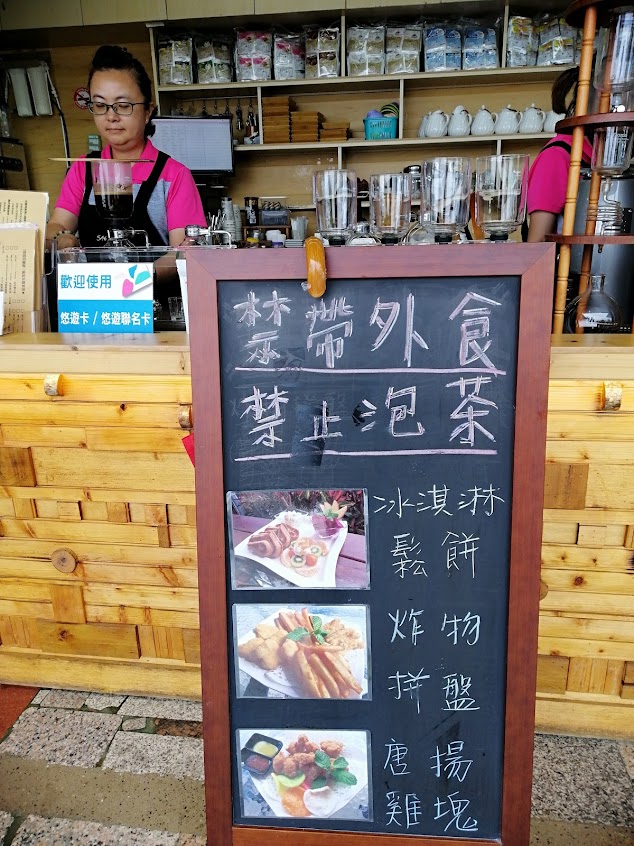 歡迎使用
悠遊卡 / 悠遊聯名卡
禁帶外食
禁止泡茶
冰淇淋
鬆餅
炸物
拼盤
唐揚
雞塊